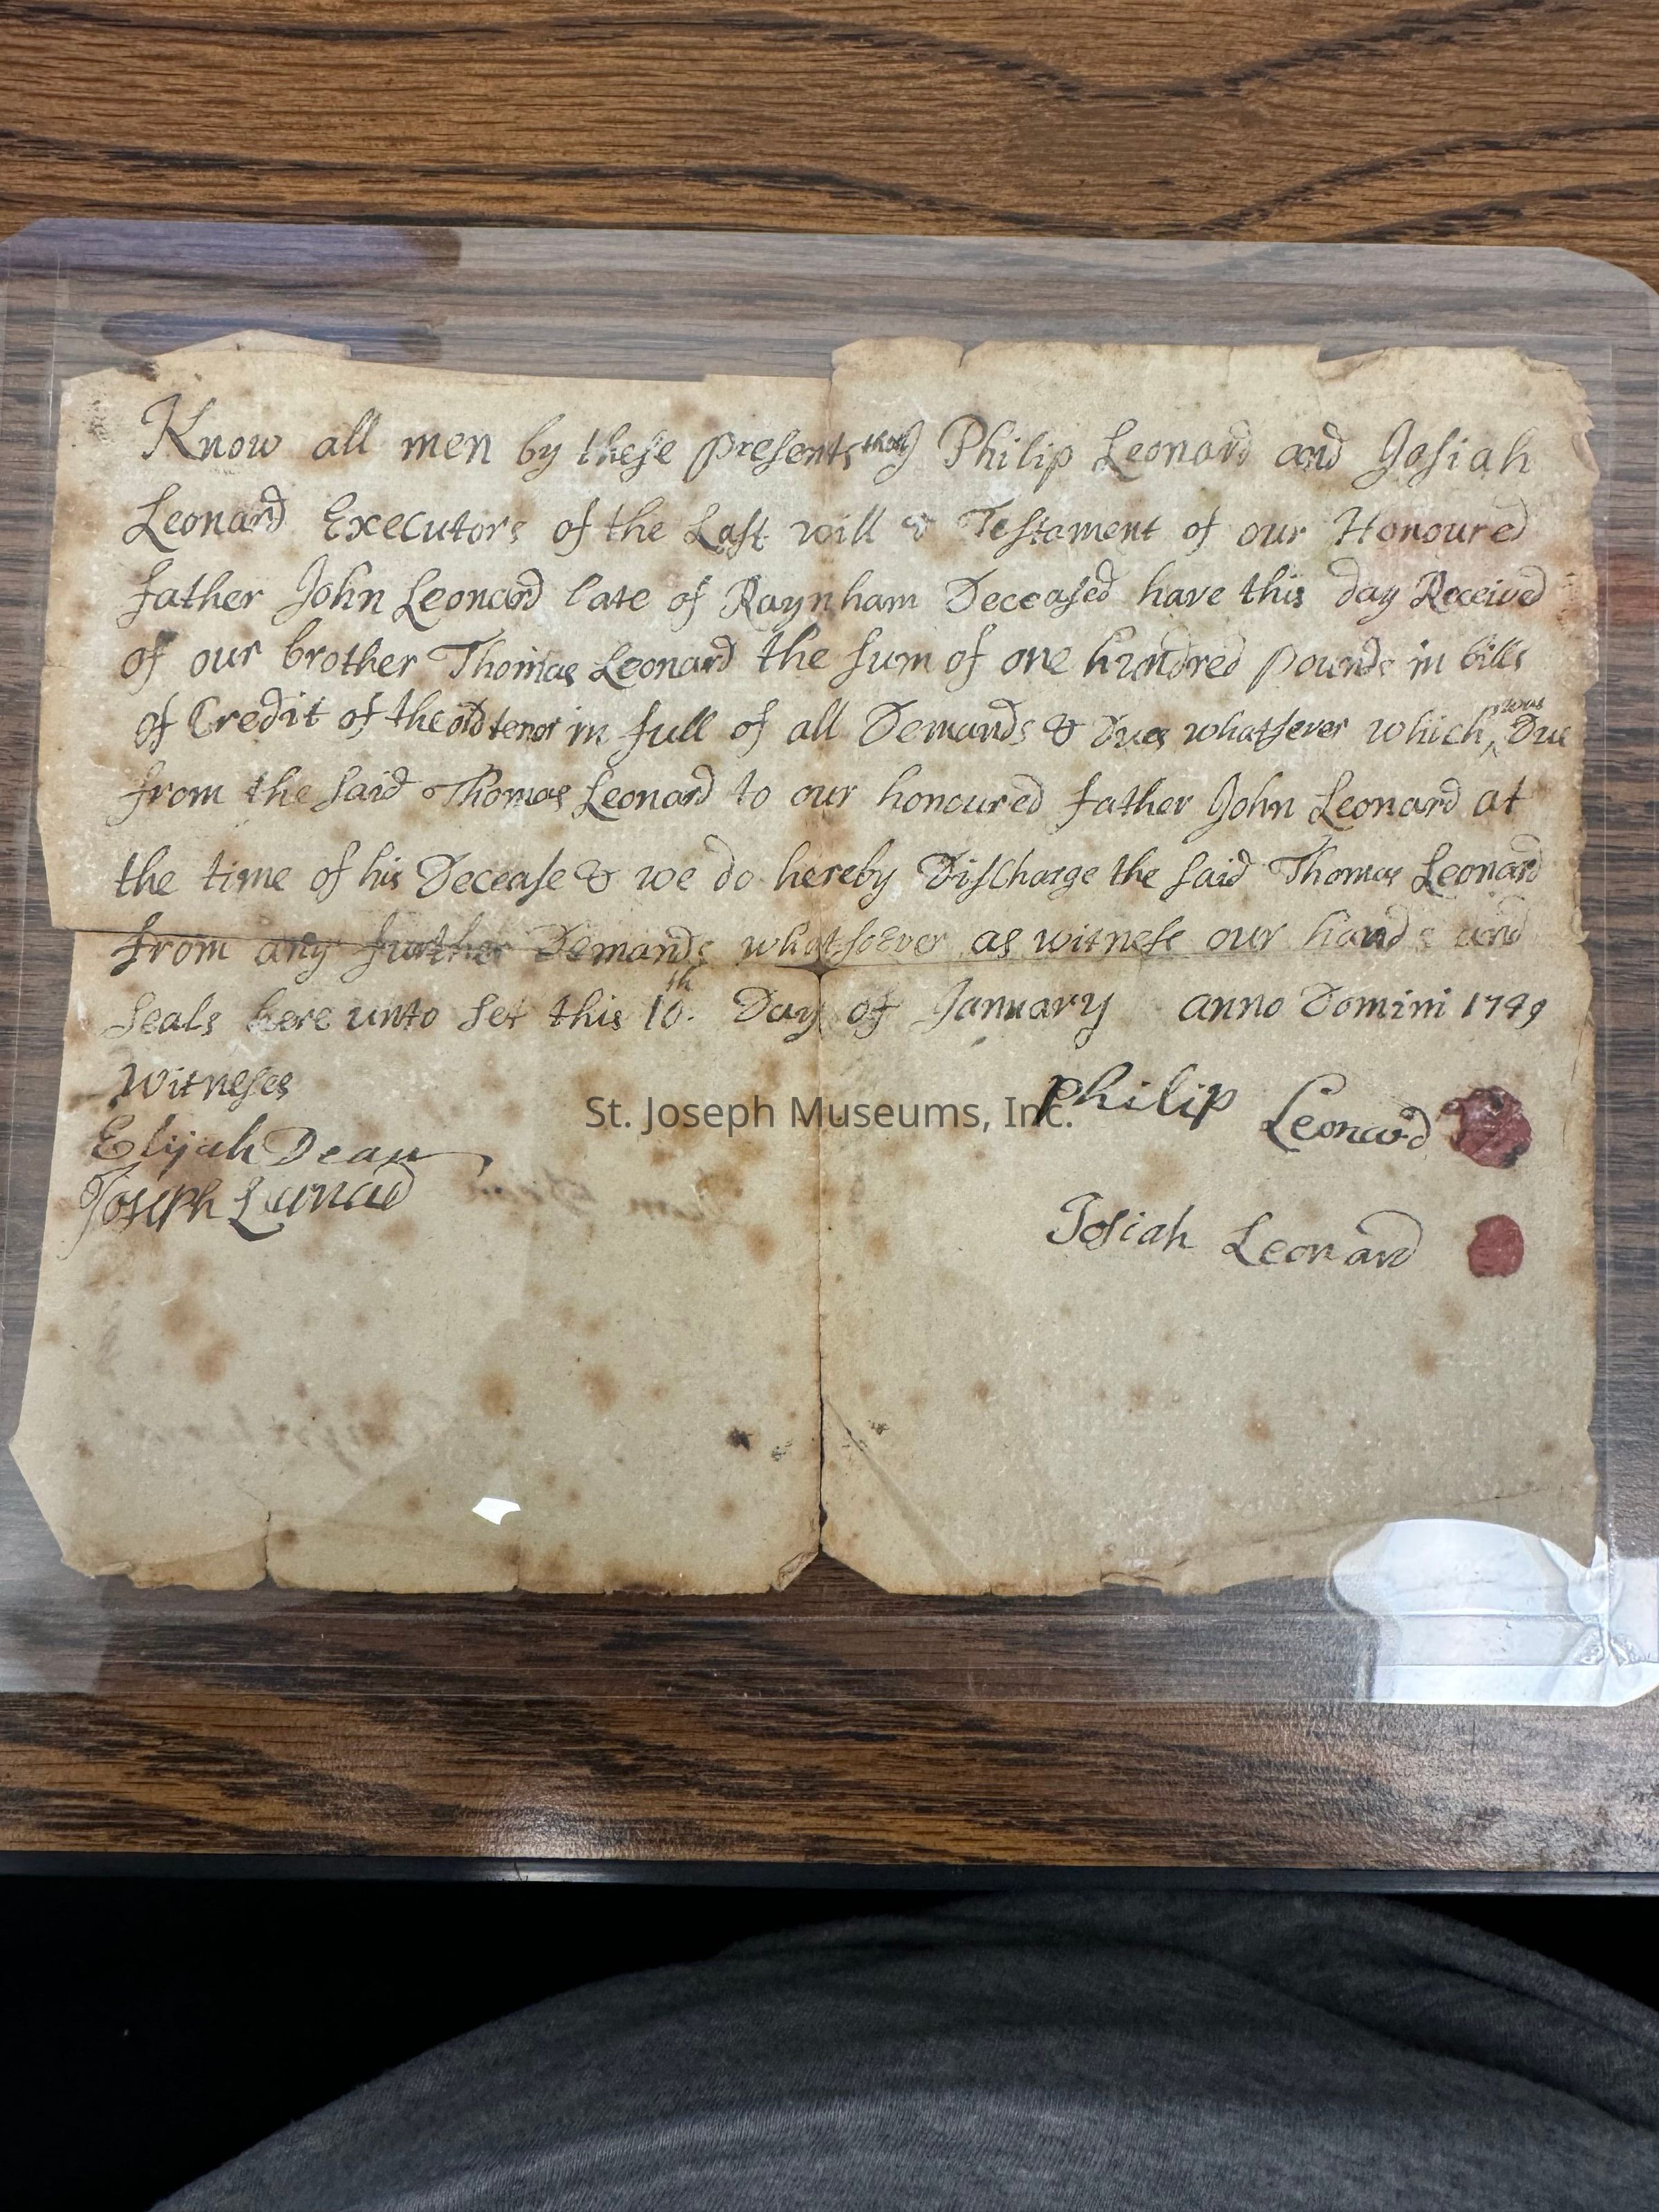 Know all men by these presents that J Philip Leonard and Josiah
Leonard Executors of the Last will & Testament of our Honoured
father John Leonard late of Raynham Deceased have this day Received
of our brother Thomas Leonard the sum of one hundred pounds in bills
of Credit of the old tenor in full of all Demands & Dues whatsever which was Due
from the said Thomas Leonard to our honoured father John Leonard at
the time of his Decease & we do hereby Discharge the said Thomas Leonard
from any further Demands whatsoever as witness our hands and
seals here unto set this 10th Day of January anno Domini 1749
Witneses
Elijah Dean
Joseph Leonard
Philip Leonard
Josiah Leonard
St. Joseph Museums, Inc.